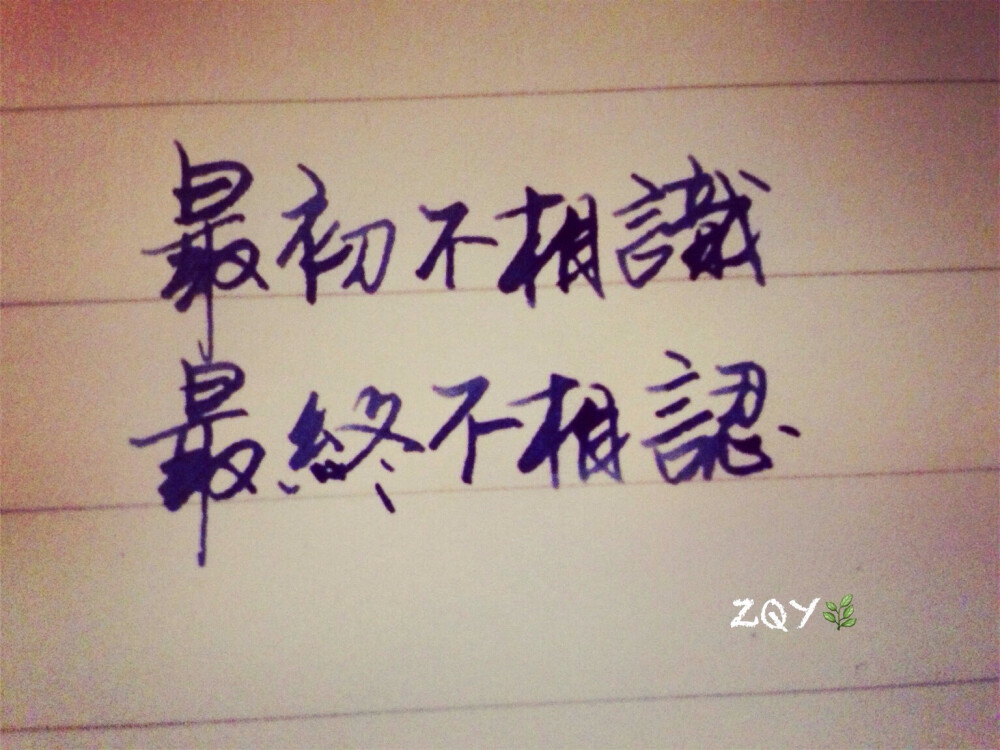 最初不相識
最終不相認
ZQY🌿